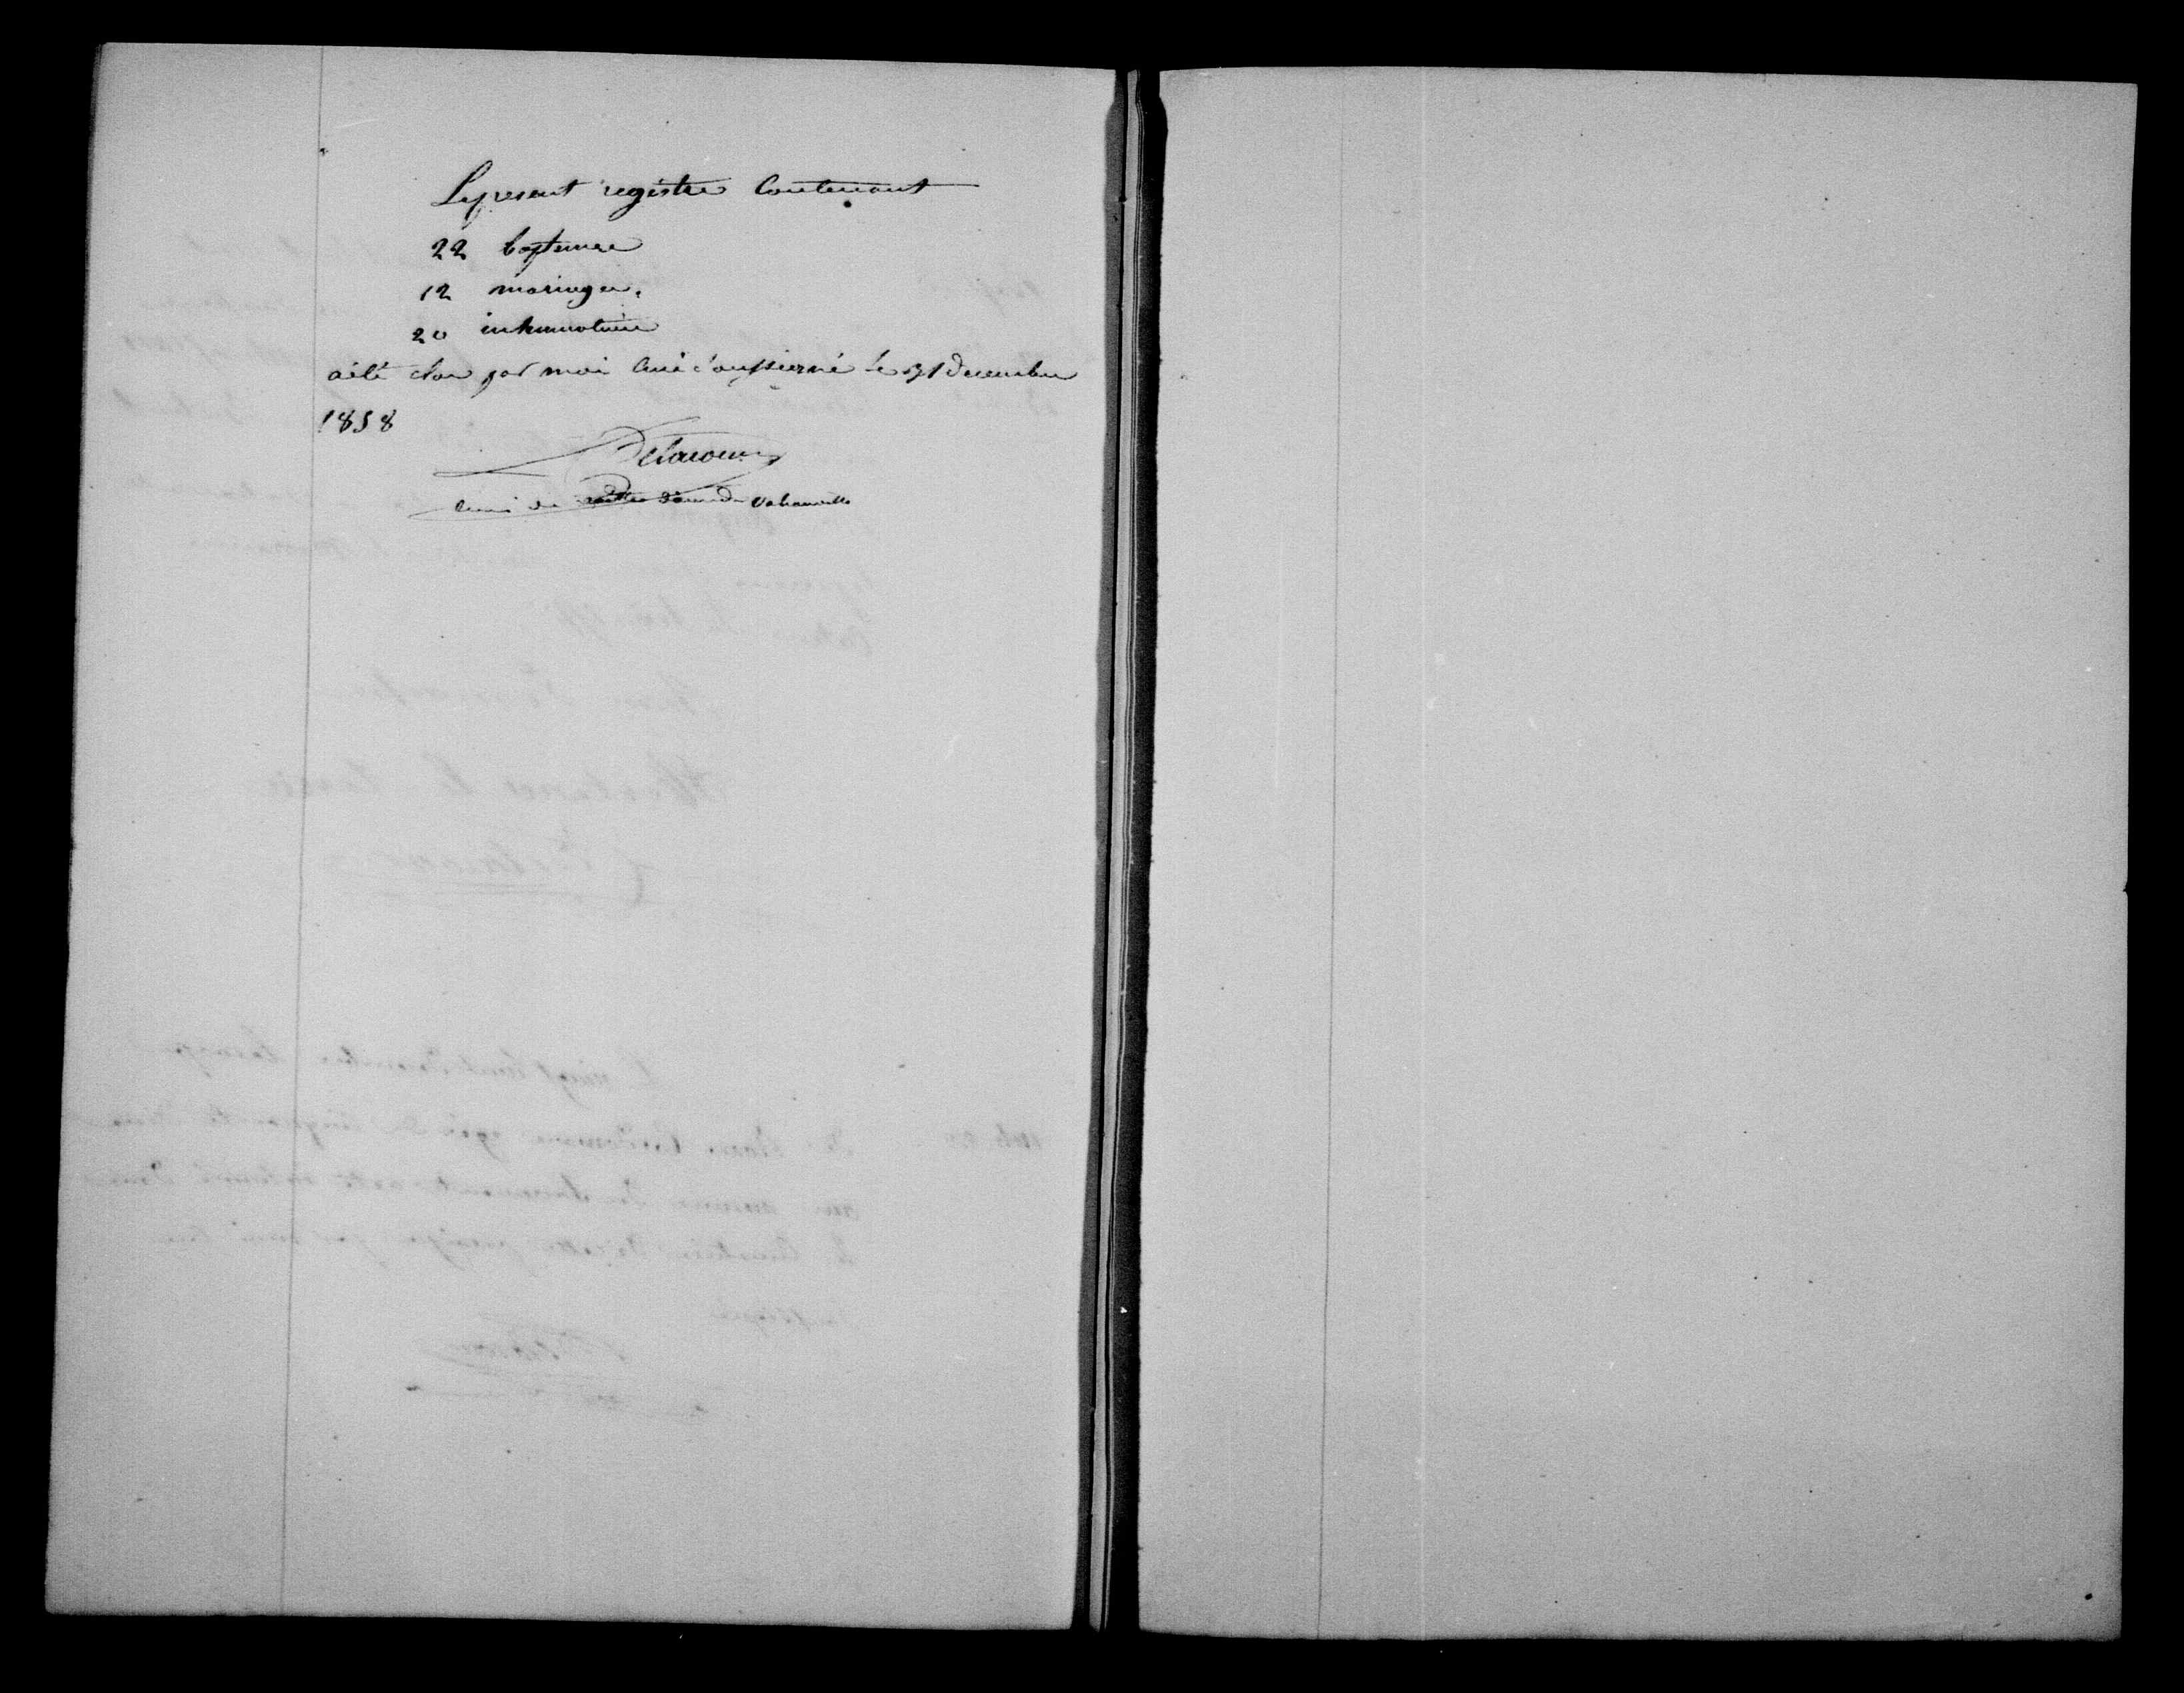 Le present registre Contenant
22 baptemes
12 mariages.
20 inhumations
a été clos par moi Curé soussigné le 31 decembre
1858
Delacour
Curé de Vahanville